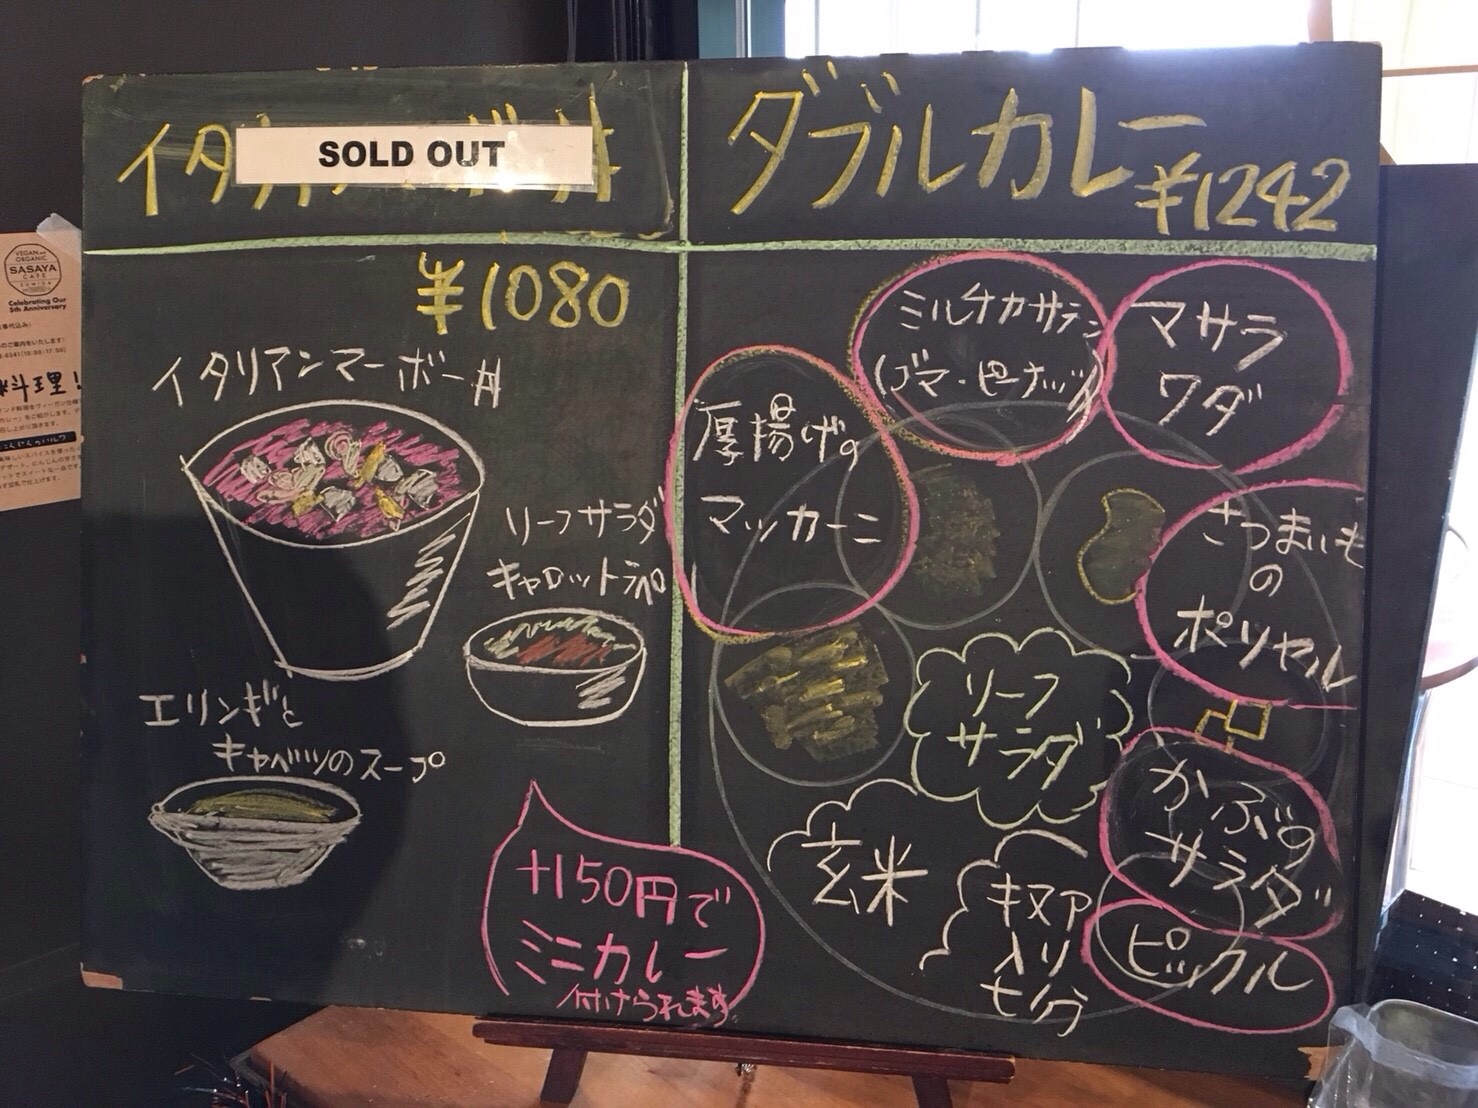 SOLD OUT
¥1080
イタリアンマーボー丼
リーフサラダ
キャロットラペ
エリンギと
キャベツのスープ
+150円で
ミニカレー
付けられます
ダブルカレー
¥1242
ミルチカサテン
(ゴマ・ピーナッツ)
マサラ
ワダ
厚揚げの
マッカーニ
さつまいも
の
ポリヤル
リーフ
サラダ
かぶの
サラダ
玄米
キヌア
入り
七分
ピックル
VEGAN and
ORGANIC
SASAYA
CAFE
Celebrating Our
5th Anniversary
料理!